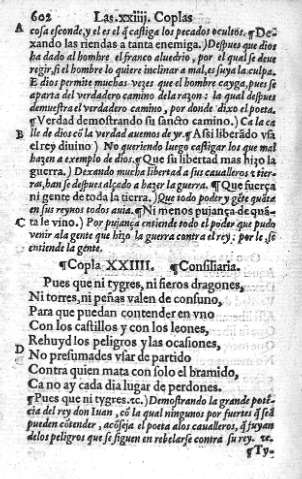 602 Las .xxiiij. Coplas
A cosa esconde, y el es el q̃ castiga los pecados ocultos. ¶De-
xando las riendas a tanta enemiga.) Despues que dios
ha dado al hombre el franco aluedrio, por el qual se deue
regir, si el hombre lo quiere inclinar a mal, es suya la culpa.
E dios permite muchas vezes que el hombre cayga, pues se
aparta del verdadero camino dela razon: la qual despues
demuestra el verdadero camino, por donde dixo el poeta.
¶Verdad demostrando su sancto camino.) Ca la ca
B lle de dios cõ la verdad auemos de yr. ¶Assi liberãdo vsa
el rey diuino) No queriendo luego castigar los que mal
hazen a exemplo de dios. ¶Que su libertad mas hizo la
guerra.) Dexando mucha libertad a sus caualleros z tier-
ras, han se despues alçado a hazer la guerra. ¶Que fuerça
ni gente de toda la tierra.) Que todo poder y gẽte quãta
en sus reynos todos auia. ¶Ni menos pujança de quã-
C ta le vino.) Por pujança entiende todo el poder que pudo
venir ala gente que hizo la guerra contra el rey: por le se
entiende la gente.
¶Copla XXIIII. ¶Consiliaria.
Pues que ni tygres, ni fieros dragones,
Ni torres, ni peñas valen de consuno,
Para que puedan contender en vno
Con los castillos y con los leones,
Rehuyd los peligros y las ocasiones,
D No presumades vsar de partido
Contra quien mata con solo el bramido,
Ca no ay cada dia lugar de perdones.
¶Pues que ni tygres. zc.) Demostrando la grande potẽ-
cia del rey don Iuan, cõ la qual ningunos por fuertes q̃ seã
pueden cõtender, acõseja el poeta alos caualleros, q̃ huyan
delos peligros que se siguen en rebelarse contra su rey. zc.
¶Ty-